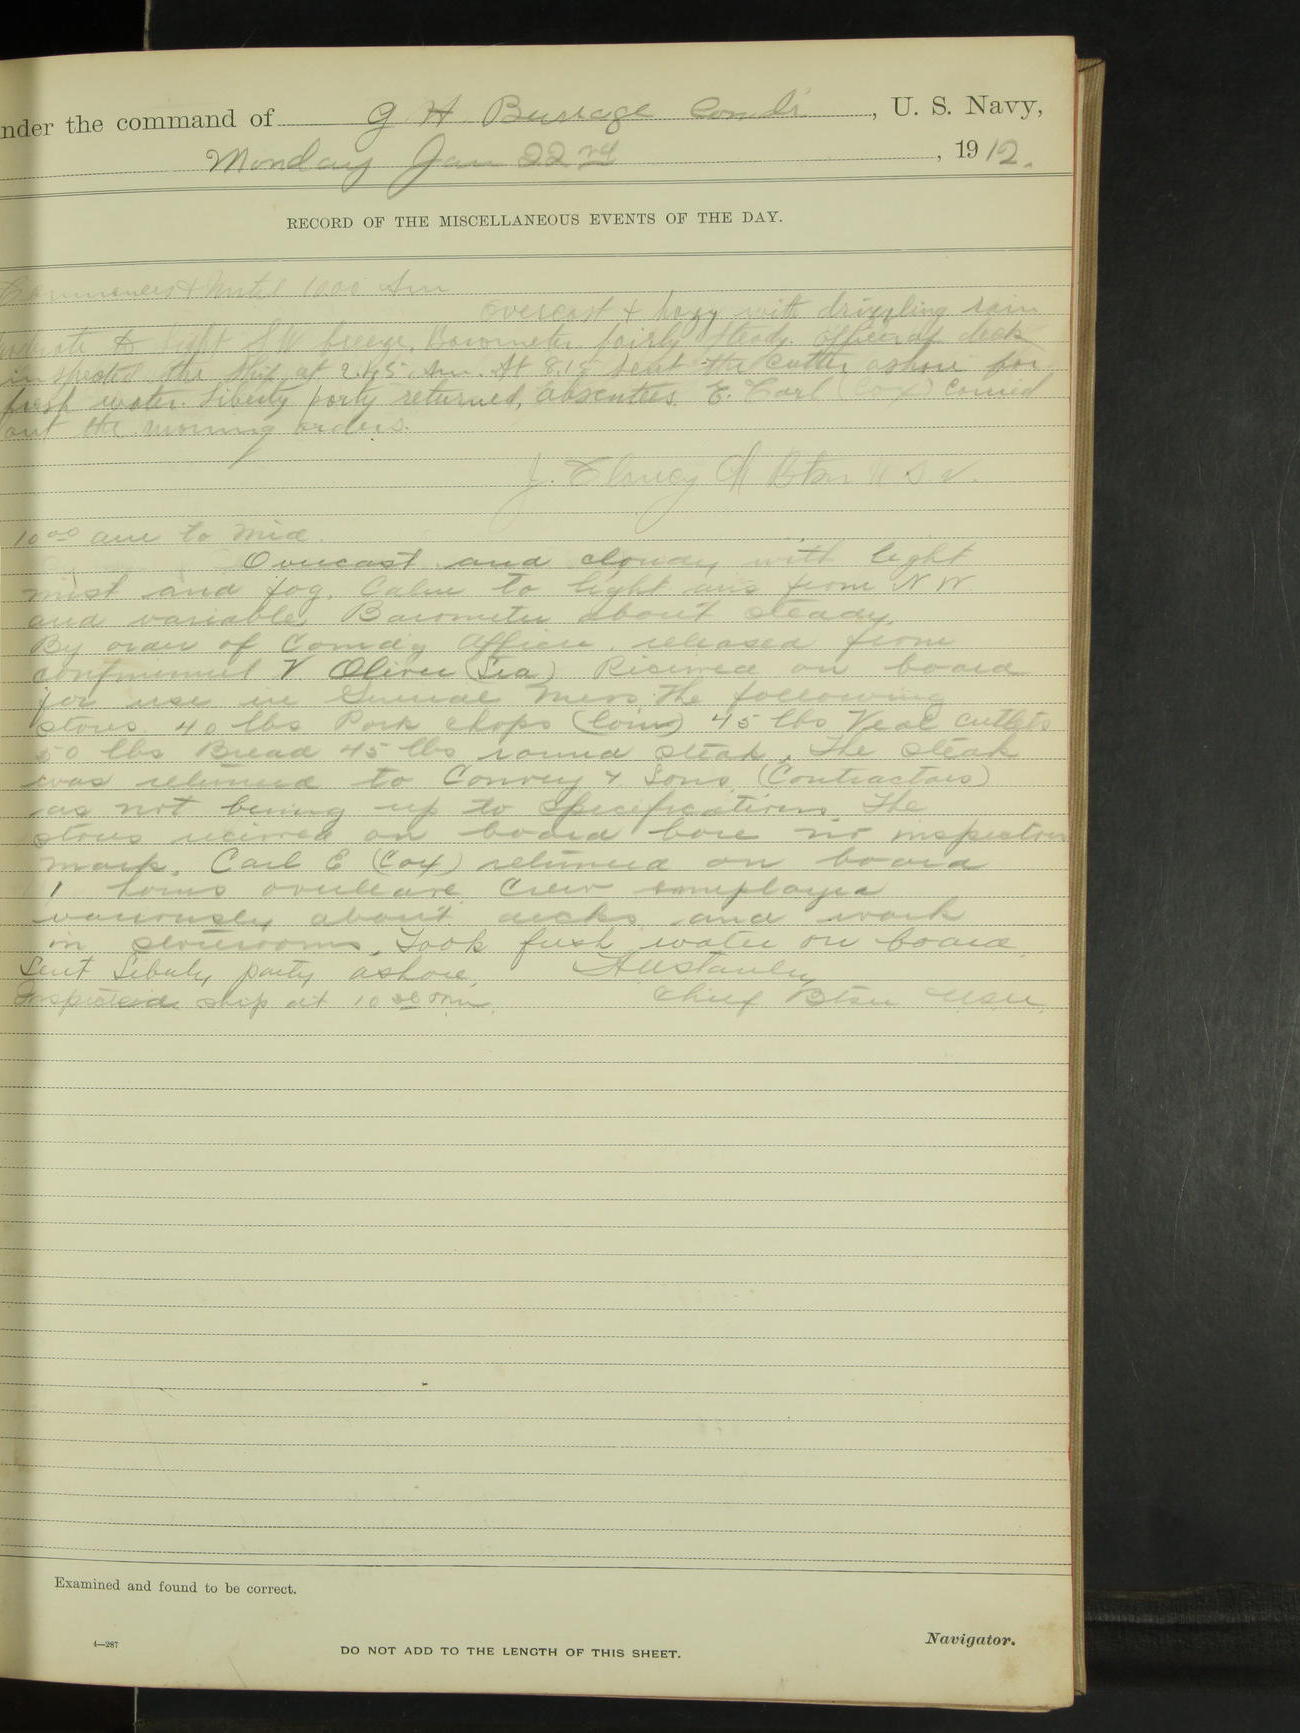 nder the command of G H Burrage Comdr, U. S. Navy,
Monday Jan 22nd, 1912.
RECORD OF THE MISCELLANEOUS EVENTS OF THE DAY.
Commences & Until 1000 Am
overcast & hazy with drizzling rain
to light SW breeze. Barometer fairly steady. Officer of deck
inspected the ship at 2.45 Am. At 8.15 sent the Cutter ashore for
fresh water. Liberty party returned, absentees. E. Carl (Cox) Carried
out the morning orders.
J. Btsn U S N.
10 00 am to Mid.
Overcast and cloudy with light
mist and fog. Calm to light airs from N W.
and variable. Barometer about steady.
By order of Comdg Officer. released from
confinement V Oliver (Sea) Received on board
for use in General Mess. The following
stores. 40 lbs Pork chops (loin) 45 lbs Veal cutlets
50 lbs Bread 45 lbs round steak. The steak
was returned to Convey & Sons. (Contractors)
as not being up to Specifications. The
stores received on board bore no inspection
mark. Carl E (Cox) returned on board
1 hours overleave. Crew employed
variously about decks and work
in storerooms. Took fresh water on board.
Sent Liberty party ashore. Stanley
Inspected ship at 10 00 Chief Btsn USN.
Examined and found to be correct.
4—287
DO NOT ADD TO THE LENGTH OF THIS SHEET.
Navigator.